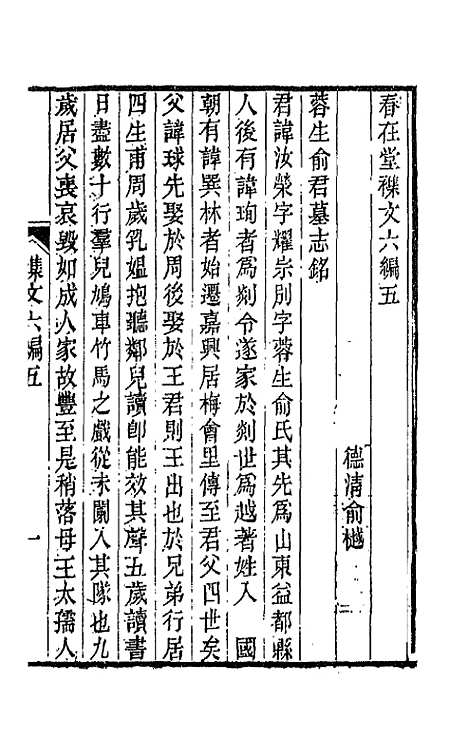 春在堂襍文六編五
德清俞樾
蓉生俞君墓志銘
君諱汝榮字耀宗別字蓉生俞氏其先爲山東益都縣
人後有諱珣者爲剡令遂家於剡世爲越著姓入 國
朝有諱巽林者始遷嘉興居梅會里傳至君父四世矣
父諱球先娶於周後娶於王君則王出也於兄弟行居
四生甫周歲乳媼抱聽鄰兒讀卽能效其聲五歲讀書
日盡數十行羣兒鳩車竹馬之戲從未闌入其隊也九
歲居父喪哀毀如成人家故豐至是稍落母王太孺人
襍文六編五
一